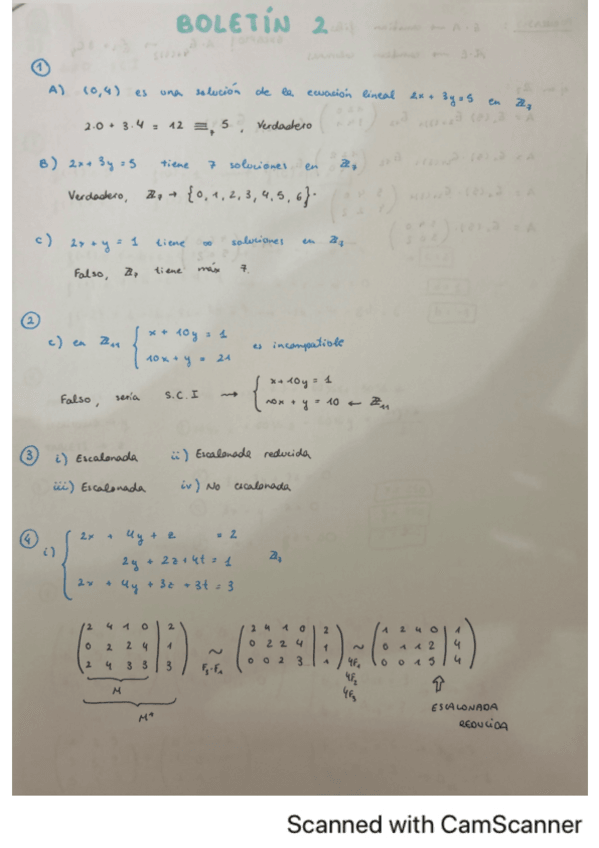 BOLETÍN 2
①
A) (0,4) es una solución de la ecuación lineal 2x + 3y = 5 en ℤ₇
2·0 + 3·4 = 12 ≡₇ 5, Verdadero
B) 2x + 3y = 5 tiene 7 soluciones en ℤ₇
Verdadero, ℤ₇ → {0, 1, 2, 3, 4, 5, 6}.
c) 2x + y = 1 tiene ∞ soluciones en ℤ₇
Falso, ℤ₇ tiene máx 7.
②
c) en ℤ₁₁ { x + 10y = 1
10x + y = 21 es incompatible
Falso, sería S.C.I → { x + 10y = 1
10x + y = 10 ← ℤ₁₁
③ i) Escalonada ii) Escalonada reducida
iii) Escalonada iv) No escalonada
④
i) { 2x + 4y + z = 2
2y + 2z + 4t = 1 ℤ₇
2x + 4y + 3z + 3t = 3
( 2 4 1 0 | 2 ) ( 2 4 1 0 | 2 ) ( 1 2 4 0 | 1 )
( 0 2 2 4 | 1 ) ~ ( 0 2 2 4 | 1 ) ~ ( 0 1 1 2 | 4 )
( 2 4 3 3 | 3 ) F₃-F₁ ( 0 0 2 3 | 1 ) 4F₁ ( 0 0 1 5 | 4 )
4F₂
4F₃
M
M*
ESCALONADA
REDUCIDA
Scanned with CamScanner